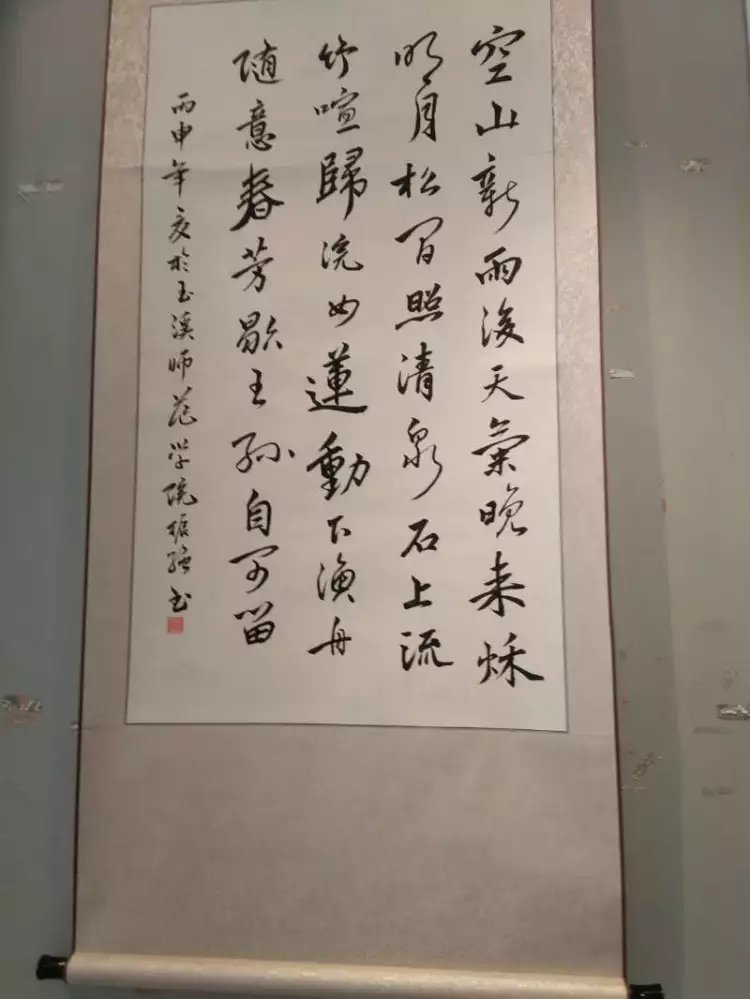 空山新雨後天氣晚来秌
明月松间照清泉石上流
竹喧歸浣女蓮動下漁舟
随意春芳歇王孙自可留
丙申年夏於玉溪师范学院振强书